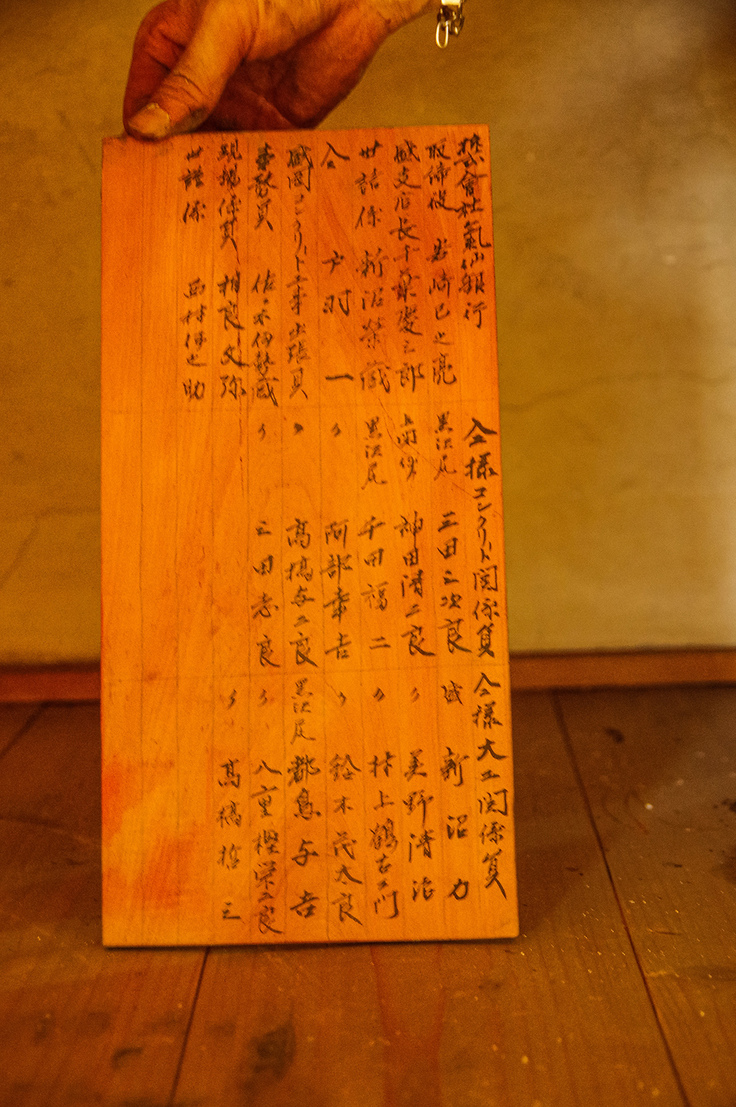 株式會社氣仙銀行
取締役 岩崎巳之亮
盛支店長千葉慶三郎
世話係 新沼榮蔵
仝 戸羽 一
盛岡コンクリート工事出張員
事務員 佐々木伊勢蔵
現場係員 相良文弥
世話係 西村伊之助
仝様コンクリート関係員
黒沢尻 三田三次良
神田清二良
黒沢尻 千田福二
〃 阿部幸吉
〃 高橋与二良
〃 三田志良
仝様大工関係員
盛 新沼力
〃 美野清治
〃 村上鶴右エ門
〃 鈴木茂太良
黒沢尻 都鳥与吉
〃 八重樫栄二良
〃 高橋哲三